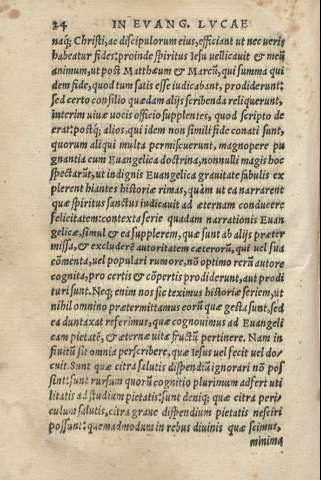 24 IN EVANG. LVCAE
naq́; Christi, ac discipulorum eius, efficiant ut nec ueris
habeatur fides: proinde spiritus Iesu uellicauit & meũ
animum, ut post Matthæum & Marcũ, qui summa qui
dem fide, quod tum satis esse iudicabant, prodiderunt:
sed certo consilio quædam alijs scribenda reliquerunt,
interim uiuæ uocis officio supplentes, quod scripto de
erat: postq́; alios, qui idem non simili fide conati sunt,
quorum aliqui multa permiscuerunt, magnopere pu
gnantia cum Euangelica doctrina, nonnulli magis hoc
spectarũt, ut indignis Euangelica grauitate fabulis ex
plerent hiantes historiæ rimas, quàm ut ea narrarent
quæ spiritus sanctus iudicauit ad æternam conducere
felicitatem: contexta serie quadam narrationis Euan
gelicæ, simul & ea supplerem, quæ sunt ab alijs præter
missa, & excluderē autoritatem cæterorũ, qui uel sua
cōmenta, uel populari rumore, nō optimo rerũ autore
cognita, pro certis & cōpertis prodiderunt, aut prodi
turi sunt. Neq́; enim nos sic teximus historiæ seriem, ut
nihil omnino prætermittamus eorũ quæ gesta sunt, sed
ea duntaxat referimus, quæ cognouimus ad Euangeli
cam pietatē, & æternæ uitæ fructũ pertinere. Nam in
finitũ sit omnia perscribere, quæ Iesus uel fecit uel do-
cuit. Sunt quæ citra salutis dispendiũ ignorari nō pos
sint: sunt rursum quorũ cognitio plurimum adfert uti
litatis ad studium pietatis: sunt deniq́; quæ citra peri-
culum salutis, citra graue dispendium pietatis nesciri
possunt: quemadmodum in rebus diuinis quæ scimus,
minima